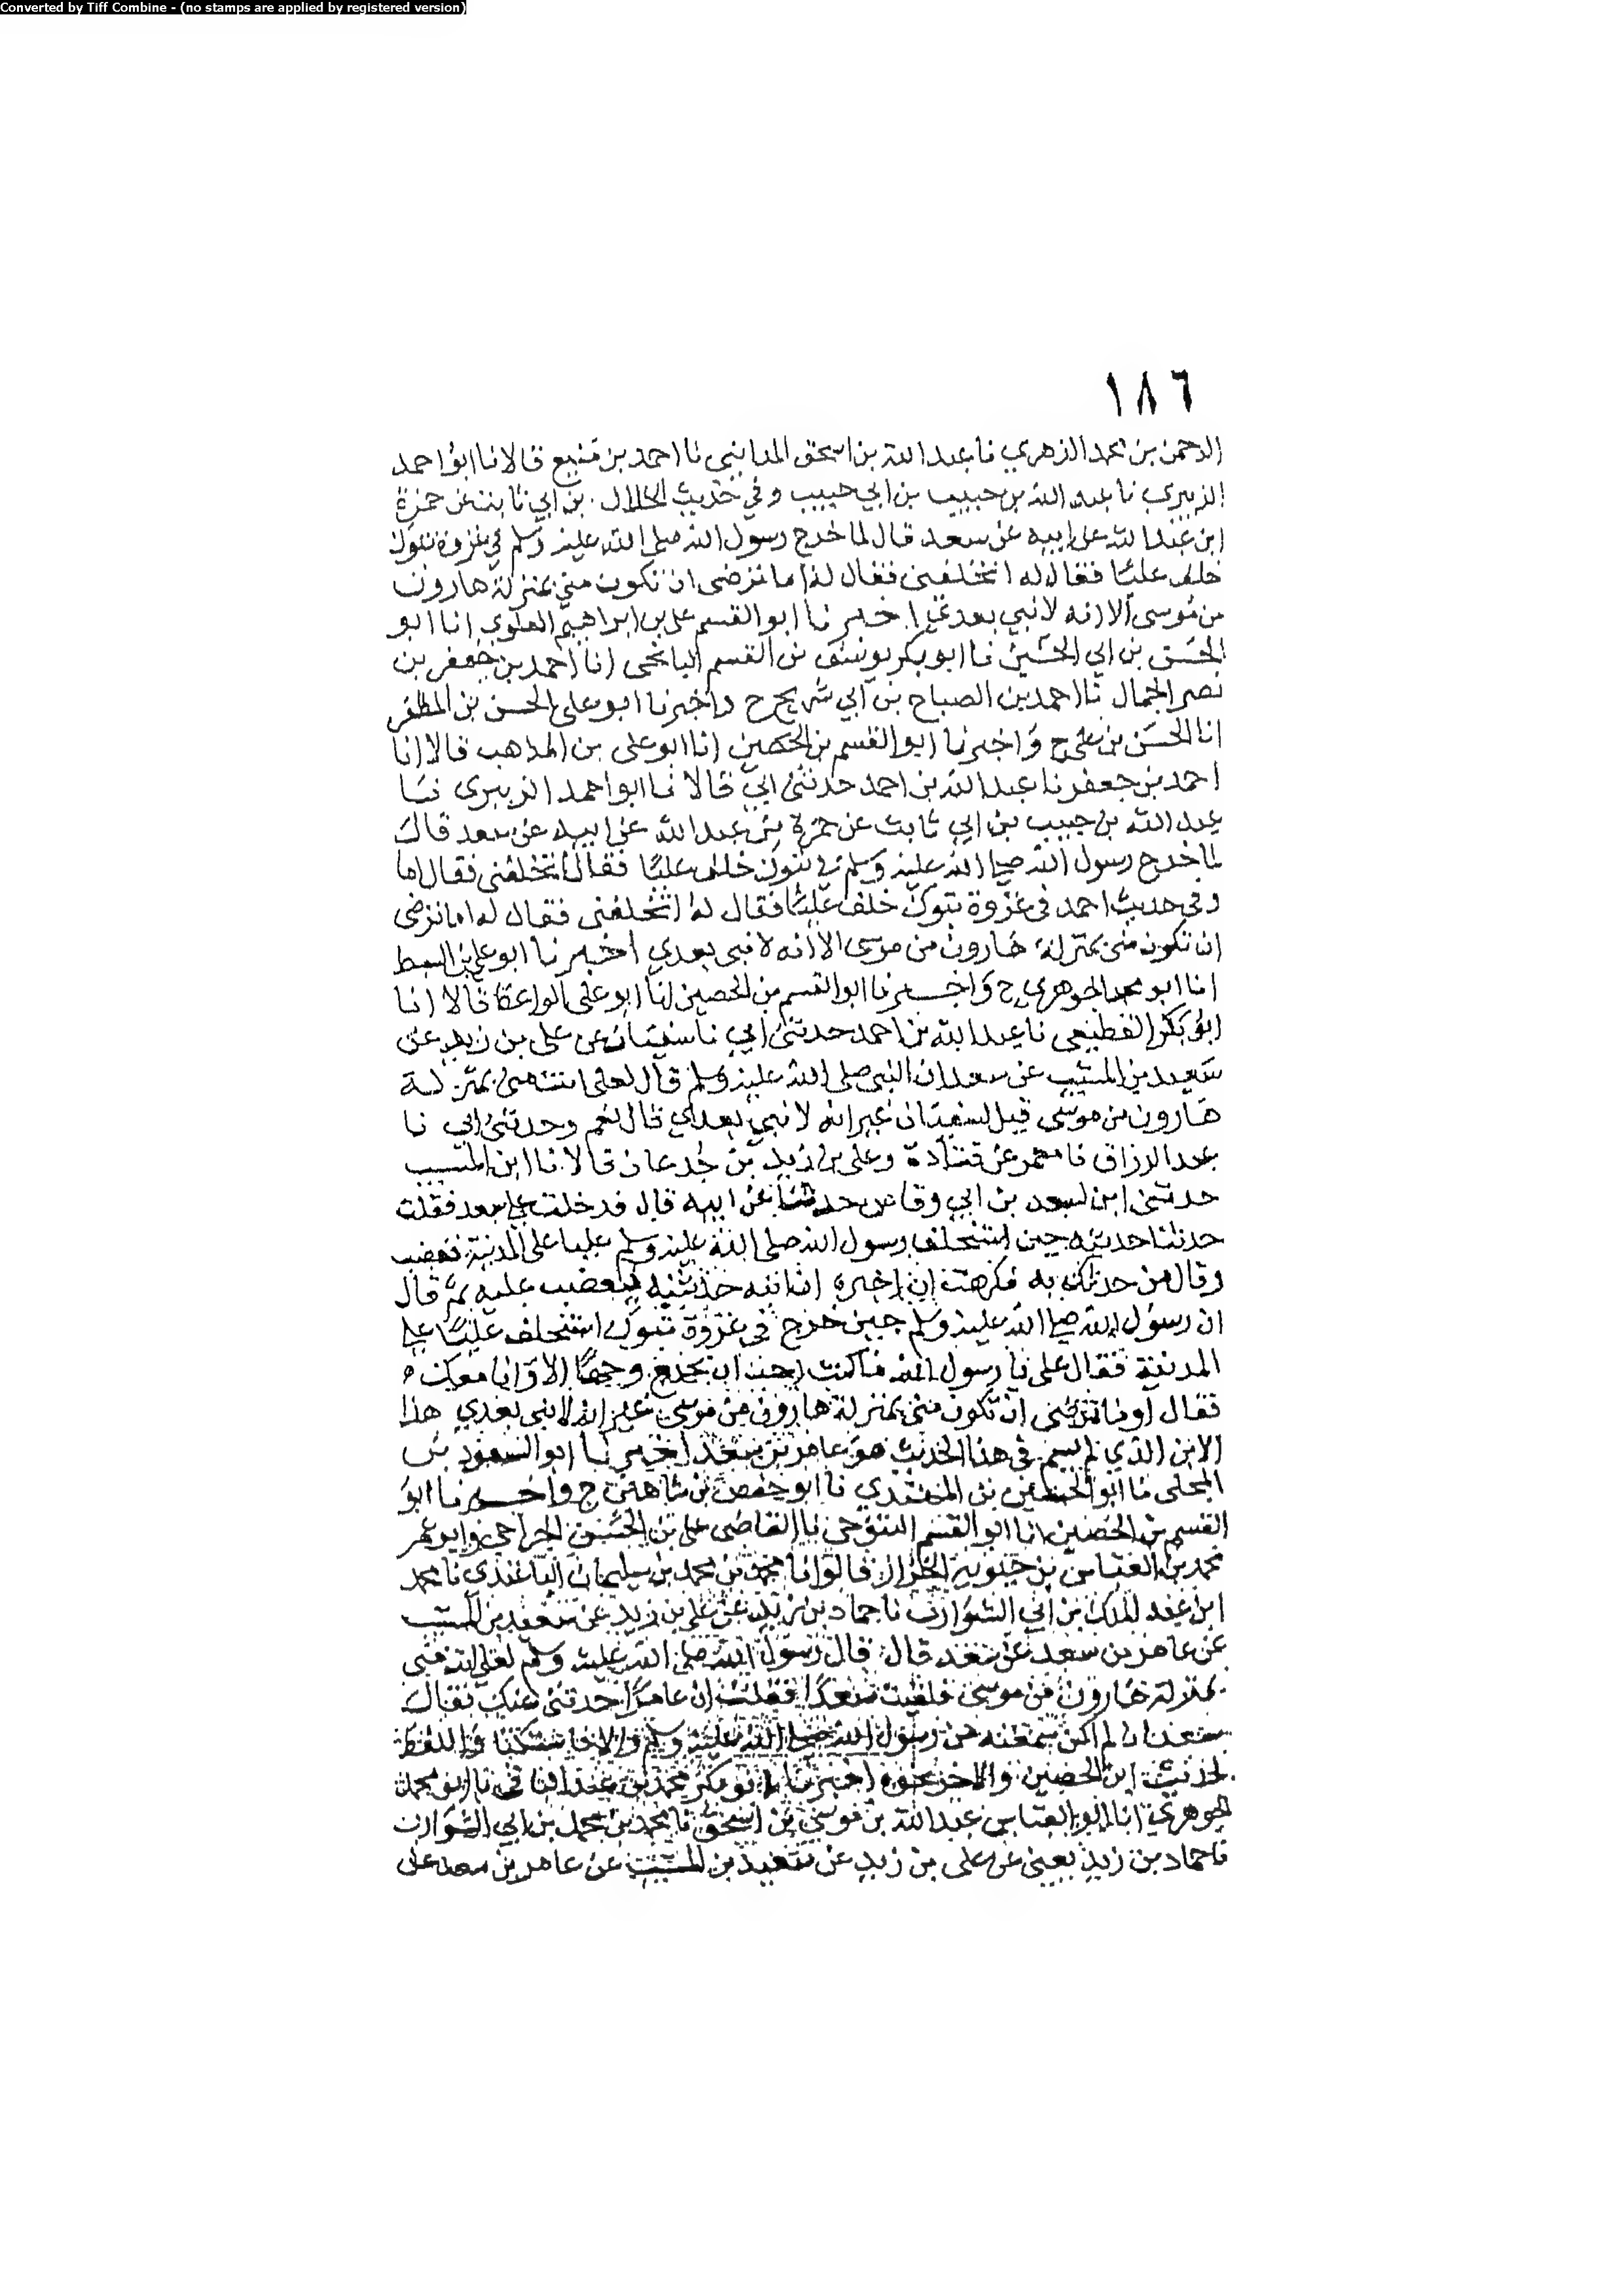 Converted by Tiff Combine - (no stamps are applied by registered version)
١٨٦
الرحمن بن محمد الزهري نا عبد الله بن اسحق المدايني نا احمد بن منيع قالا نا ابو احمد
الزبيري نا عبد الله بن حبيب بن ابي حبيب وفي حديث الخلال بن ابي ثابت عن حمزة
ابن عبد الله عن ابيه عن سعد قال لما خرج رسول الله صلى الله عليه وسلم في غزوة تبوك
خلف عليا فقال له اتخلفني فقال له اما ترضى ان تكون مني بمنزلة هارون
من موسى الا انه لا نبي بعدي اخبرنا ابو القسم علي بن ابراهيم العلوي انا ابو
الحسن بن ابي الحسين نا ابو بكر يوسف بن القسم الميانجي انا احمد بن جعفر بن
نصر الجمال نا احمد بن الصباح بن ابي شريح ح واخبرنا ابو علي الحسن بن المظفر
انا الحسن بن علي ح واخبرنا ابو القسم بن الحصين انا ابو علي بن المذهب قالا انا
احمد بن جعفر نا عبد الله بن احمد حدثني ابي قالا نا ابو احمد الزبيري نا
عبد الله بن حبيب بن ابي ثابت عن حمزة بن عبد الله عن ابيه عن سعد قال
لما خرج رسول الله صلى الله عليه وسلم في تبوك خلف عليا فقال اتخلفني فقال اما
وفي حديث احمد في غزوة تبوك خلف عليا فقال له اتخلفني فقال له اما ترضى
ان تكون مني بمنزلة هارون من موسى الا انه لا نبي بعدي اخبرنا ابو علي بن السبط
انا ابو محمد الجوهري ح واخبرنا ابو القسم بن الحصين انا ابو علي الواعظ قالا انا
ابو بكر القطيعي نا عبد الله بن احمد حدثني ابي نا سفيان عن علي بن زيد عن
سعيد بن المسيب عن سعد ان النبي صلى الله عليه وسلم قال لعلي انت مني بمنزلة
هارون من موسى قيل لسفيان غير انه لا نبي بعدي قال نعم وحدثني ابي نا
عبد الرزاق نا معمر عن قتادة وعلي بن زيد بن جدعان قالا نا ابن المسيب
حدثني ابن لسعد بن ابي وقاص حدثنا عن ابيه قال فدخلت على سعد فقلت
حدثنا حديثه حين استخلف رسول الله صلى الله عليه وسلم عليا على المدينة فغضب
وقال من حدثك به فكرهت ان اخبره ان ابنه حدثنيه فيغضب عليه ثم قال
ان رسول الله صلى الله عليه وسلم حين خرج في غزوة تبوك استخلف عليا على
المدينة فقال علي يا رسول الله ما كنت احب ان تخرج وجها الا وانا معك ه
فقال اوما ترضى ان تكون مني بمنزلة هارون من موسى غير انه لا نبي بعدي هذا
الابن الذي لم يسم في هذا الحديث هو عامر بن سعد اخبرنا ابو السعود بن
المجلي نا ابو الحسين بن المهتدي نا ابو حفص بن شاهين ح واخبرنا ابو
القسم بن الحصين انا ابو القسم التنوخي نا القاضي علي بن الحسن الجراحي وابو عمر
محمد بن العباس بن حيويه الخزاز قالوا نا محمد بن محمد بن سليمان الباغندي نا محمد
ابن عبد الملك بن ابي الشوارب نا حماد بن زيد عن علي بن زيد عن سعيد بن المسيب
عن عامر بن سعد عن سعد قال قال رسول الله صلى الله عليه وسلم لعلي انت مني
بمنزلة هارون من موسى فلقيت سعدا فقلت ان عامرا حدثني عنك فقال
سعد ان لم اكن سمعته من رسول الله صلى الله عليه وسلم والا فاستكتا واللفظ
لحديث ابن الحصين والاخر نحوه اخبرنا ابو بكر محمد بن عبد الباقي نا ابو محمد
الجوهري انا ابو العباس عبد الله بن موسى بن اسحق نا محمد بن محمد بن ابي الشوارب
نا حماد بن زيد يعني عن علي بن زيد عن سعيد بن المسيب عن عامر بن سعد عن